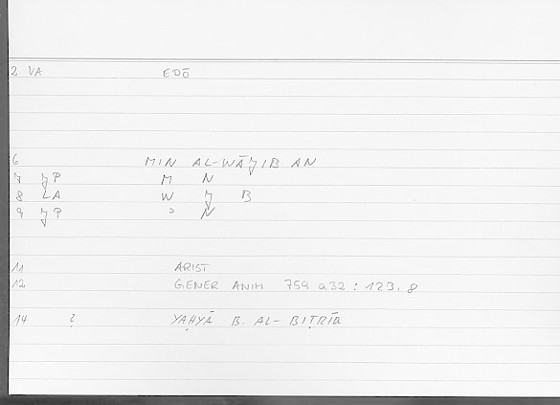 2 VA EDŌ
6 MIN AL-WĀJIB AN
7 JP M N
8 LA W J B
9 JP ʾ N
11 ARIST
12 GENER ANIM 759 a32 : 123.8
14 ? YAḤYĀ B. AL-BIṬRĪQ